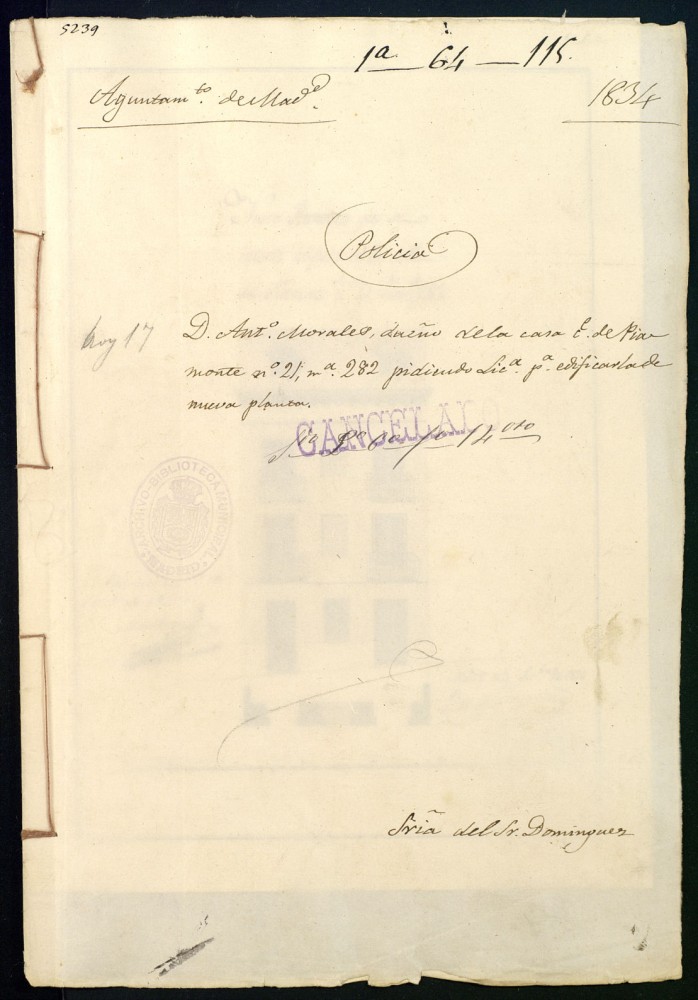 5239
1ª 64 — 115.
Ayuntam.to de Mad.d
1834
Policia
hoy 17
D. Ant.º Morales, dueño dela casa C.e de Pia-
monte nº. 21, m.a 282 pidiendo Lic.a p.a edificarla de
nueva planta.
CANCELADO
ARCHIVO-BIBLIOTECA MUNICIPAL
MADRID
Sria del Sr. Dominguez